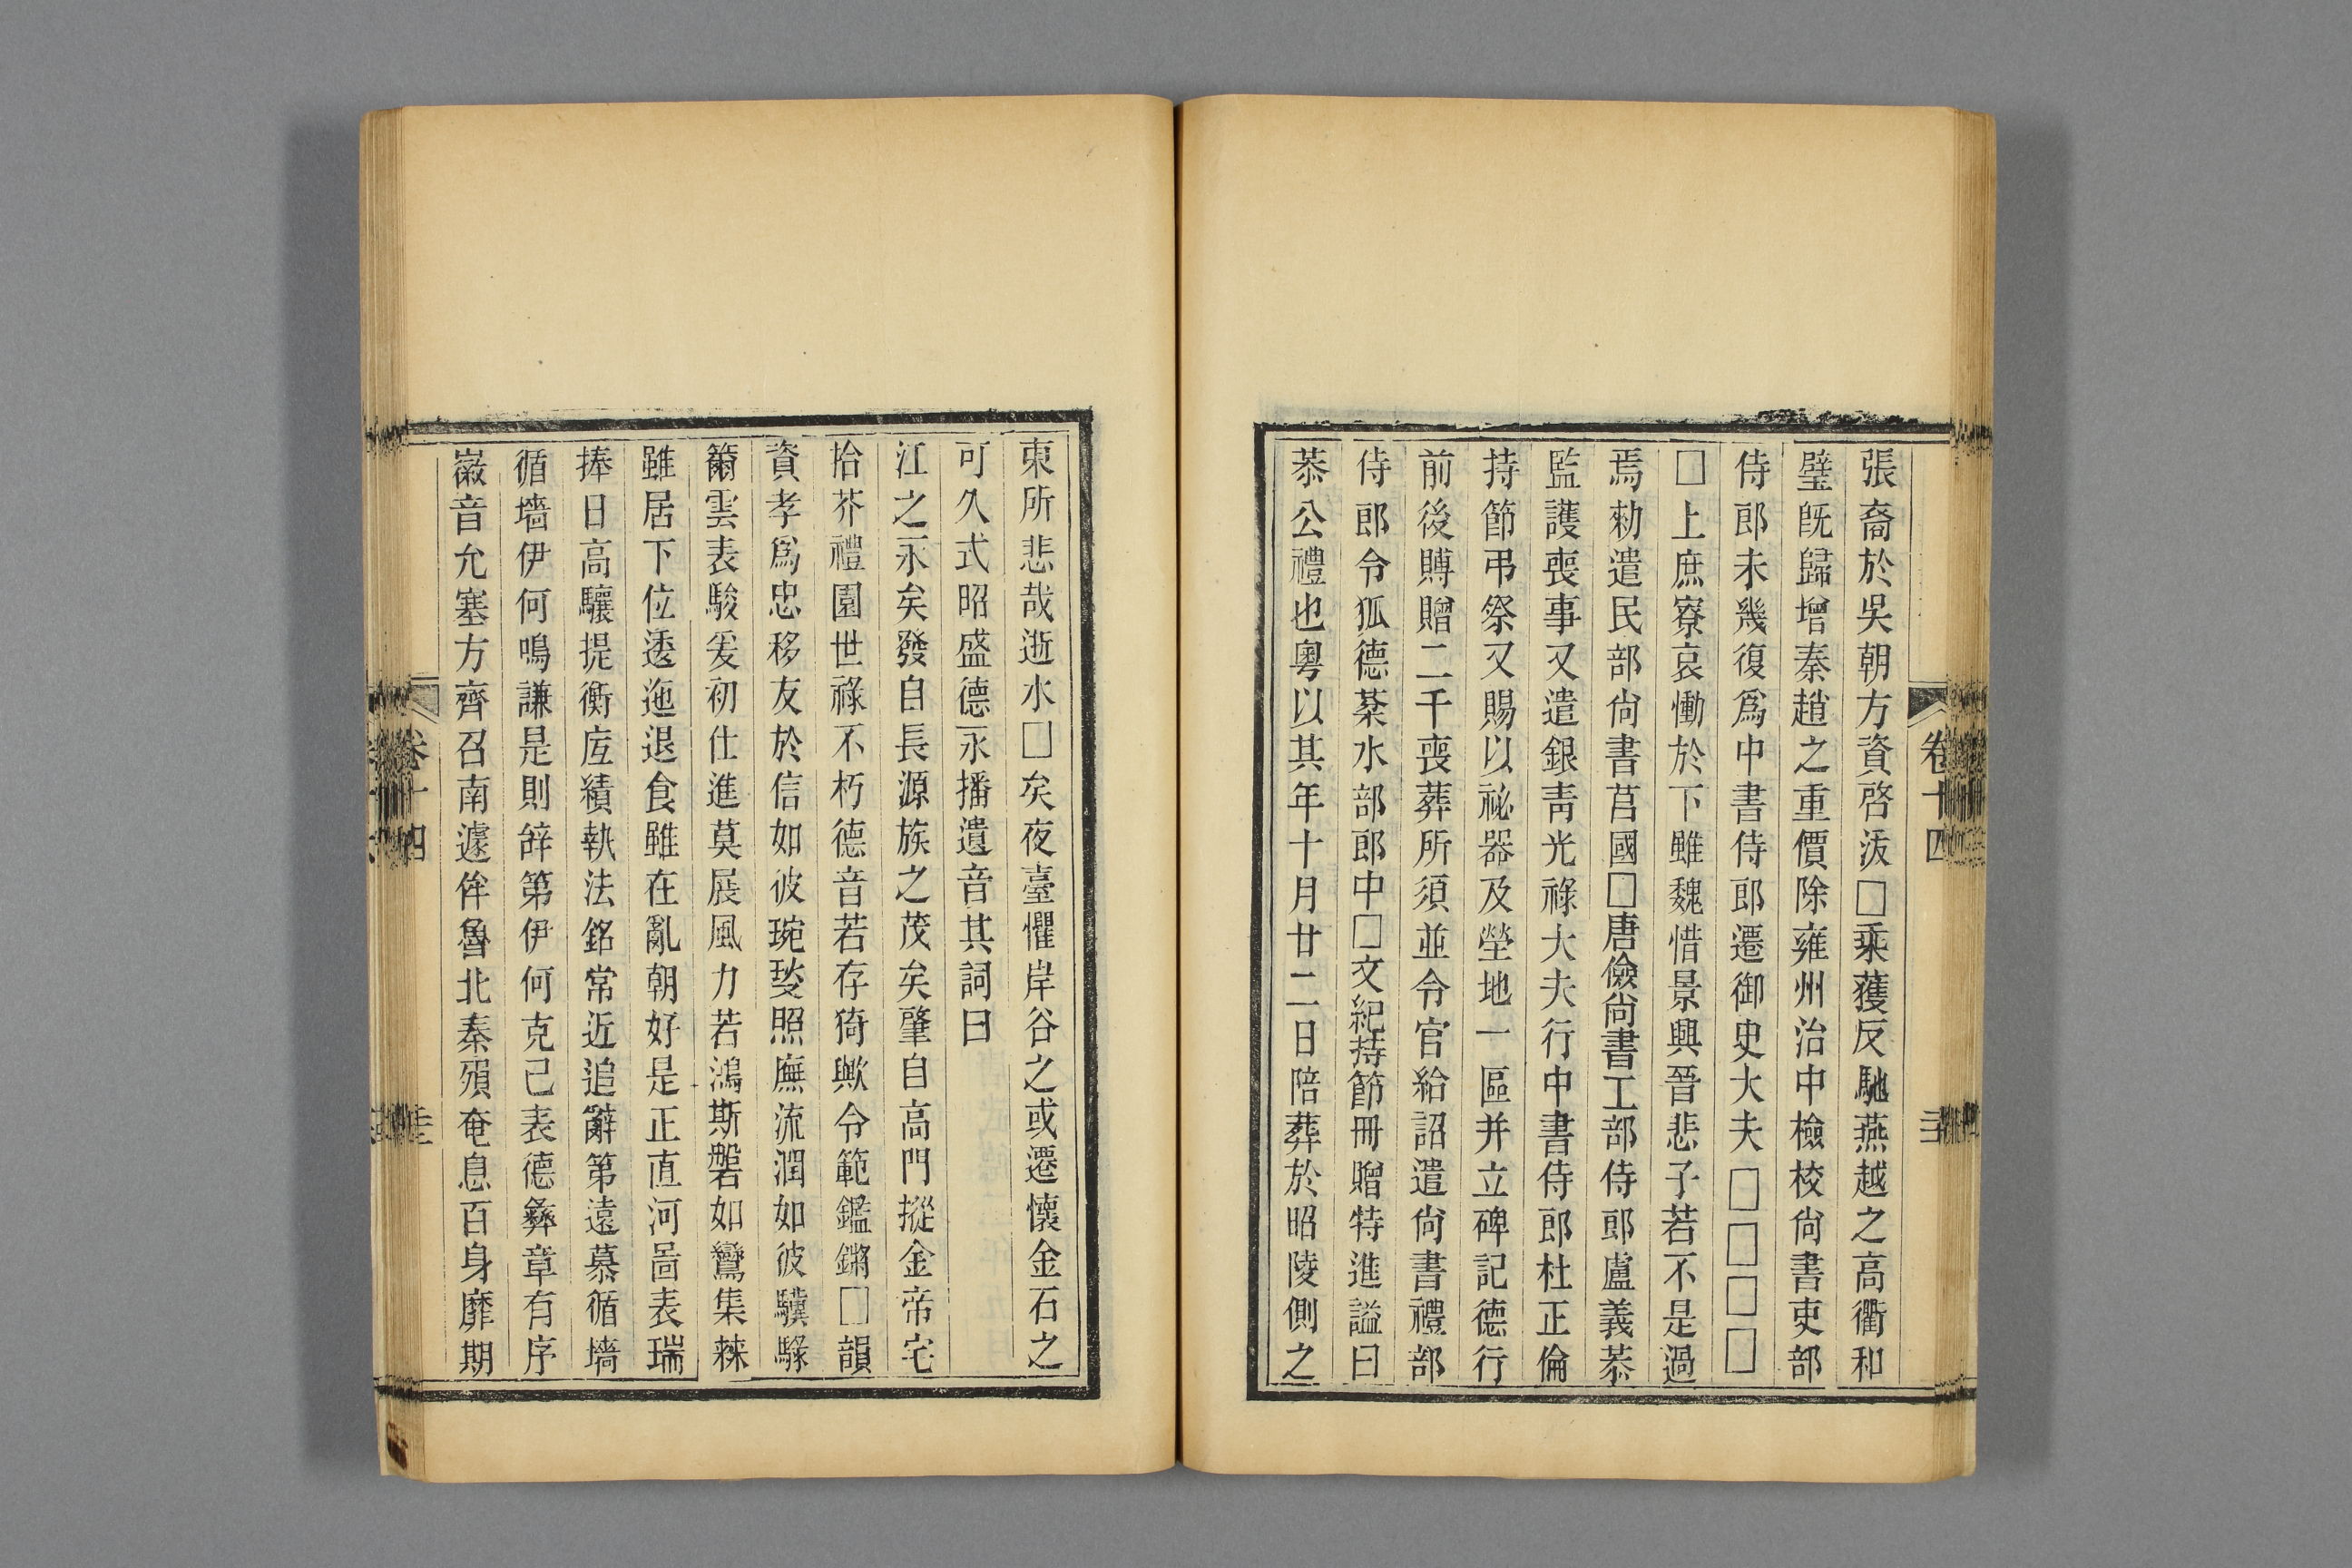 張裔於吳朝方資啓沃□乘獲反馳燕越之高衢和
璧旣歸增秦趙之重價除雍州治中檢校尙書吏部
侍郎未幾復爲中書侍郎遷御史大夫□□□□
□上庶寮哀慟於下雖魏惜景興晉悲子若不是過
焉勑遣民部尙書莒國□唐儉尙書工部侍郎盧義恭
監護喪事又遣銀靑光祿大夫行中書侍郎杜正倫
持節弔祭又賜以祕器及塋地一區并立碑記德行
前後賻贈二千喪葬所須並令官給詔遣尙書禮部
侍郎令狐德棻水部郎中□文紀持節冊贈特進謚曰
恭公禮也粵以其年十月廿二日陪葬於昭陵側之
卷十四
東所悲哉逝水□矣夜臺懼岸谷之或遷懷金石之
可久式昭盛德永播遺音其詞曰
江之永矣發自長源族之茂矣肇自高門摐金帝宅
拾芥禮園世祿不朽德音若存猗歟令範鑑鏘□韻
資孝爲忠移友於信如彼琬琰照廡流潤如彼驥騄
籋雲表駿爰初仕進莫展風力若鴻斯磐如鸞集棘
雖居下位逶迤退食雖在亂朝好是正直河啚表瑞
捧日高驤提衡庶績執法銘常近追辭第遠慕循墻
循墻伊何鳴謙是則辭第伊何克己表德彝章有序
徽音允塞方齊召南遽侔魯北秦殞奄息百身靡期
卷十四